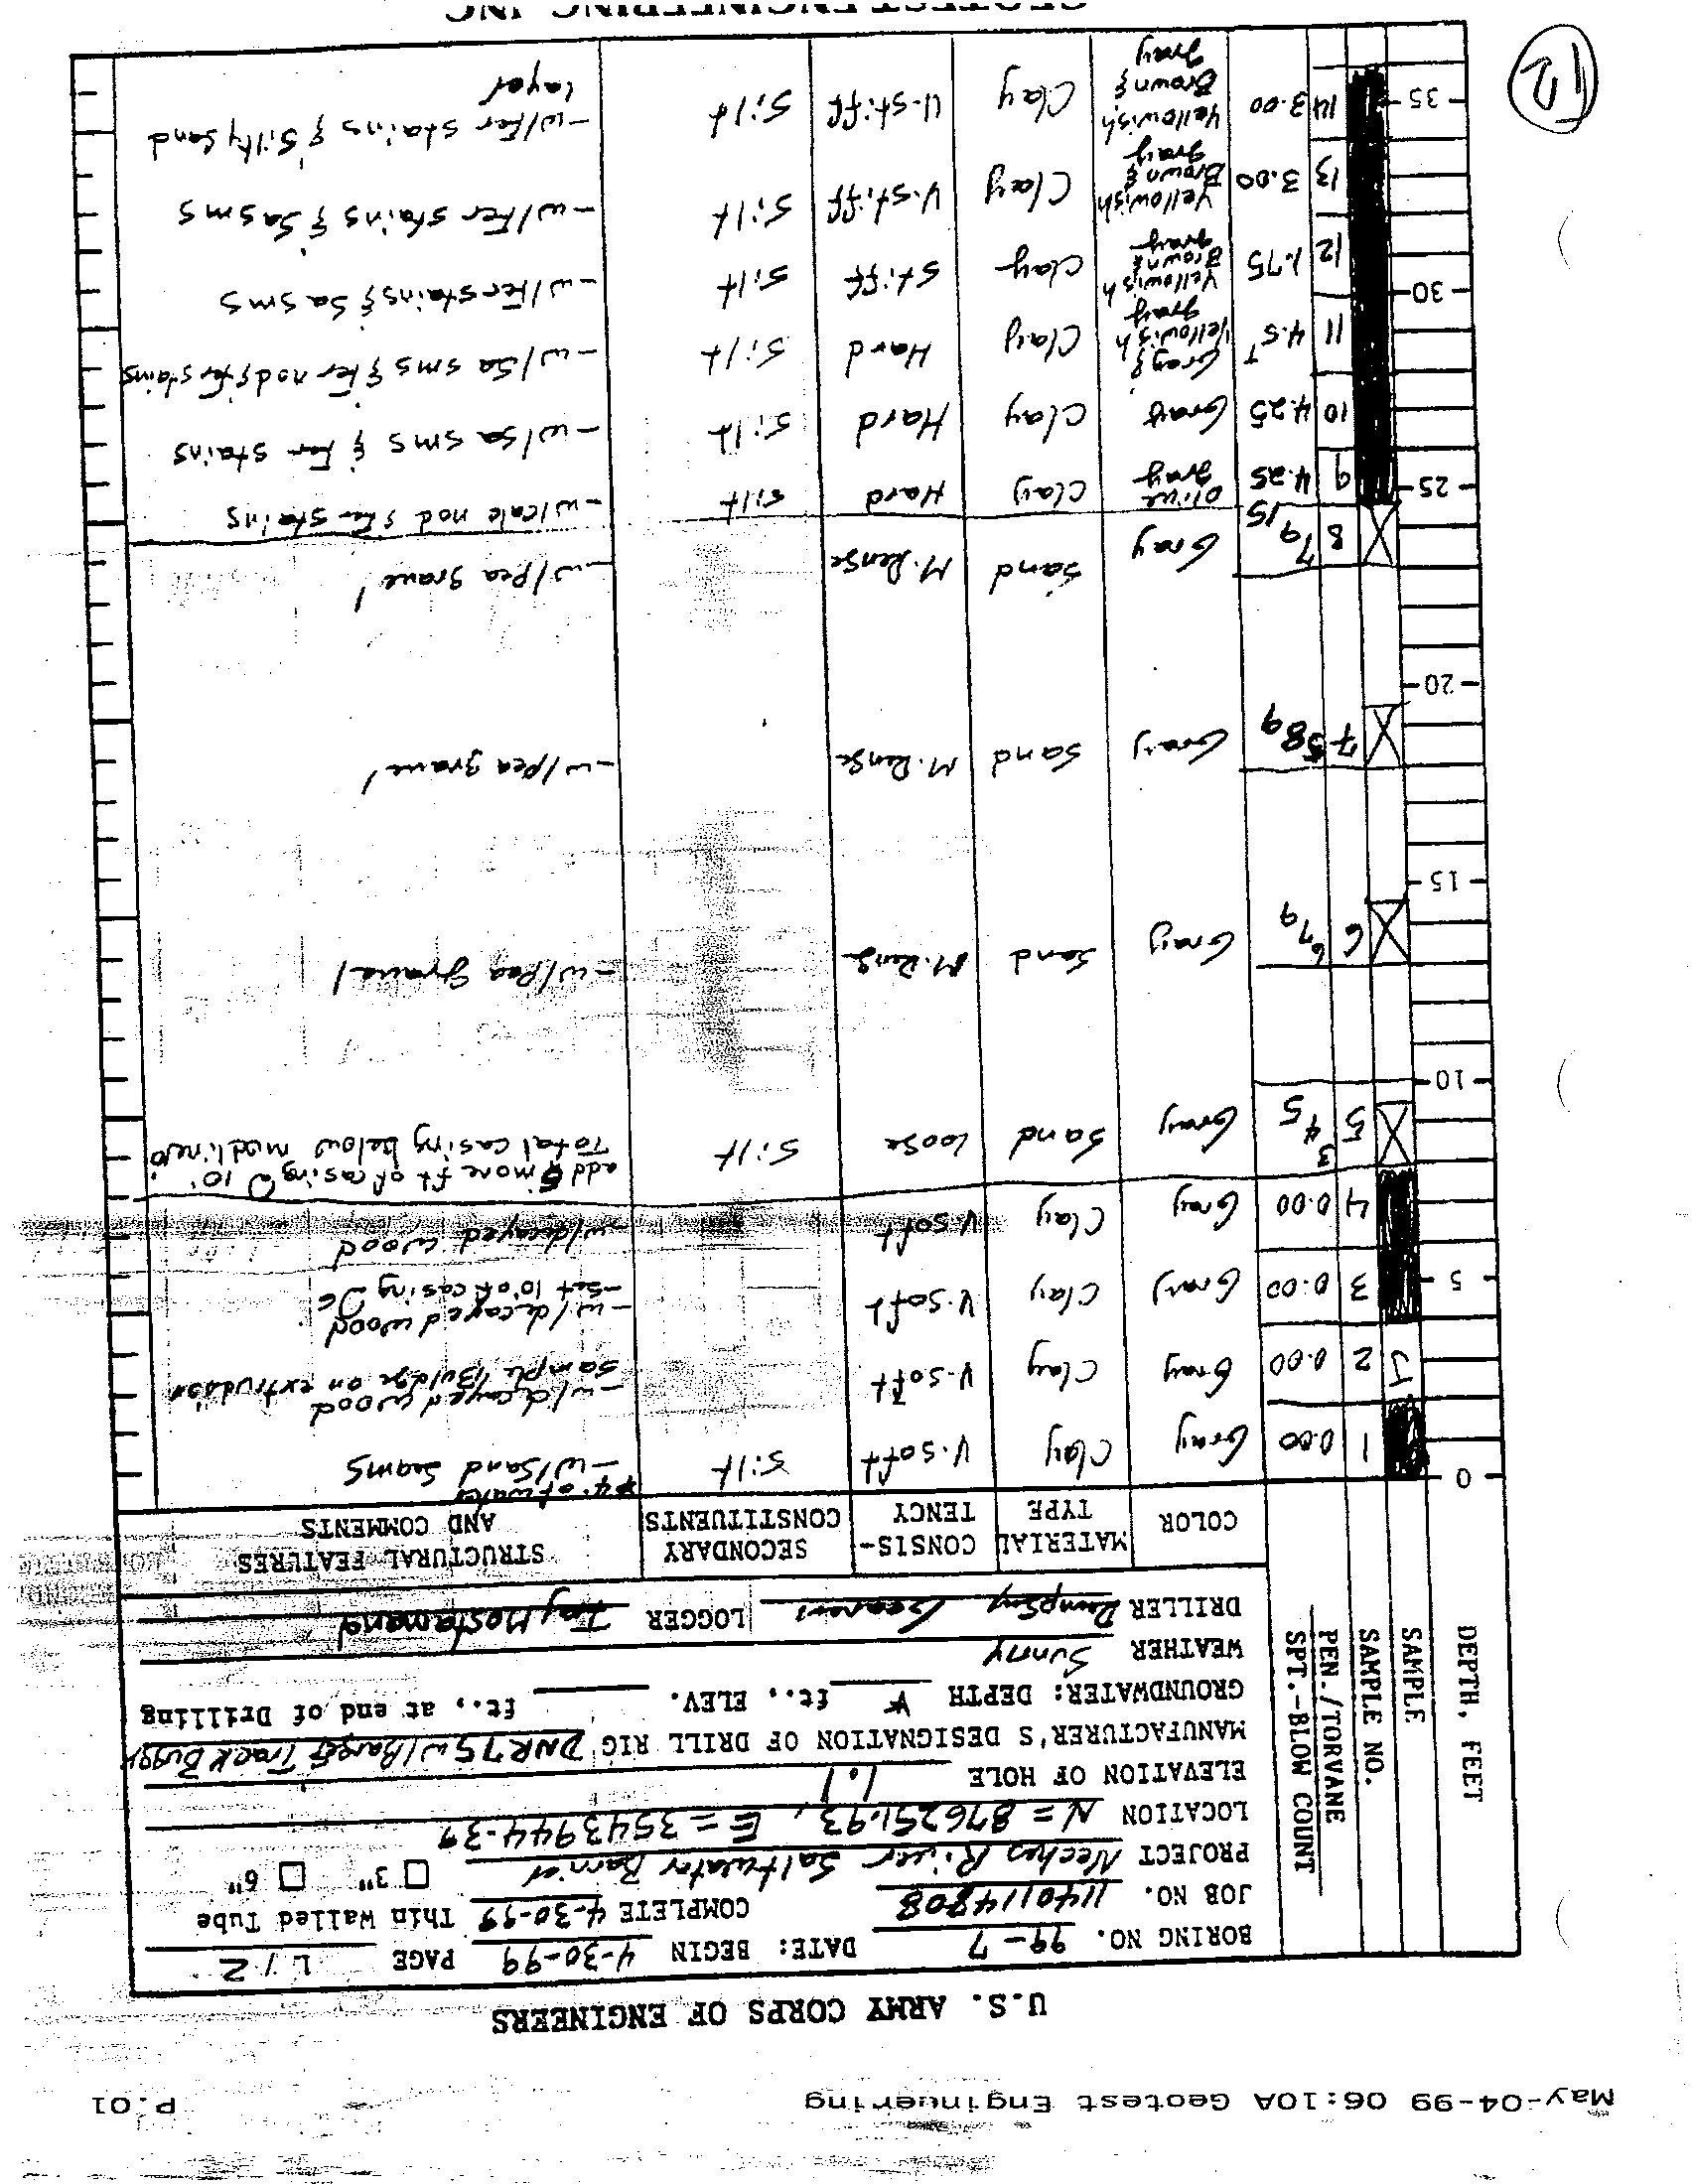 May-04-99 06:10A Geotest Enginuering P.01
U.S. ARMY CORPS OF ENGINEERS
BORING NO. 99-7 DATE: BEGIN 4-30-99 PAGE 1/2
JOB NO. 1140114808 COMPLETE 4-30-99 Thin Walled Tube
PROJECT Neches River Saltwater Barrier 3" 6"
LOCATION N= 876251.93, E= 3543944.39
ELEVATION OF HOLE 1.1
MANUFACTURER'S DESIGNATION OF DRILL RIG DNR75 w/Barge & Track Buggy
GROUNDWATER: DEPTH * ft., ELEV. ft., at end of Drilling
WEATHER Sunny
DRILLER Dempsey LOGGER
DEPTH, FEET
SAMPLE
SAMPLE NO.
PEN./TORVANE
SPT.-BLOW COUNT
COLOR MATERIAL TYPE CONSIS-TENCY SECONDARY CONSTITUENTS STRUCTURAL FEATURES AND COMMENTS
0 1 0.00 Gray Clay V.soft Silt *4' of water
-w/Sand Seams
J 2 0.00 Gray Clay V.soft -w/decayed wood
Sample Buldge on extrudsion
5 3 0.00 Gray Clay V.soft -w/decayed wood
-Set 10' of casing
4 0.00 Gray Clay V.soft -w/decayed wood
5 3 4 5 Gray Sand Loose Silt add 5 more ft of casing @ 10'
Total casing below mudline 10'
10
6 6 7 9 Gray Sand M.Dense -w/Pea gravel
15
7 5 8 9 Gray Sand M.Dense -w/Pea gravel
20
8 7 9 15 Gray Sand M.Dense -w/Pea gravel
25 9 4.25 Olive gray Clay Hard Silt -w/calc nod & fer stains
10 4.25 Gray Clay Hard Silt -w/sa sms & Fer stains
11 4.5+ Gray & Yellowish gray Clay Hard Silt -w/Sa sms & fer nod & fer stains
30 12 1.75 Yellowish Brown & gray Clay Stiff Silt -w/Fer stains & Sa sms
13 3.00 Yellowish Brown & gray Clay V.stiff Silt -w/Fer stains & Sa sms
35 14 3.00 Yellowish Brown & gray Clay V.stiff Silt -w/Fer stains & Silty Sand
layer
GEOTEST ENGINEERING INC
12